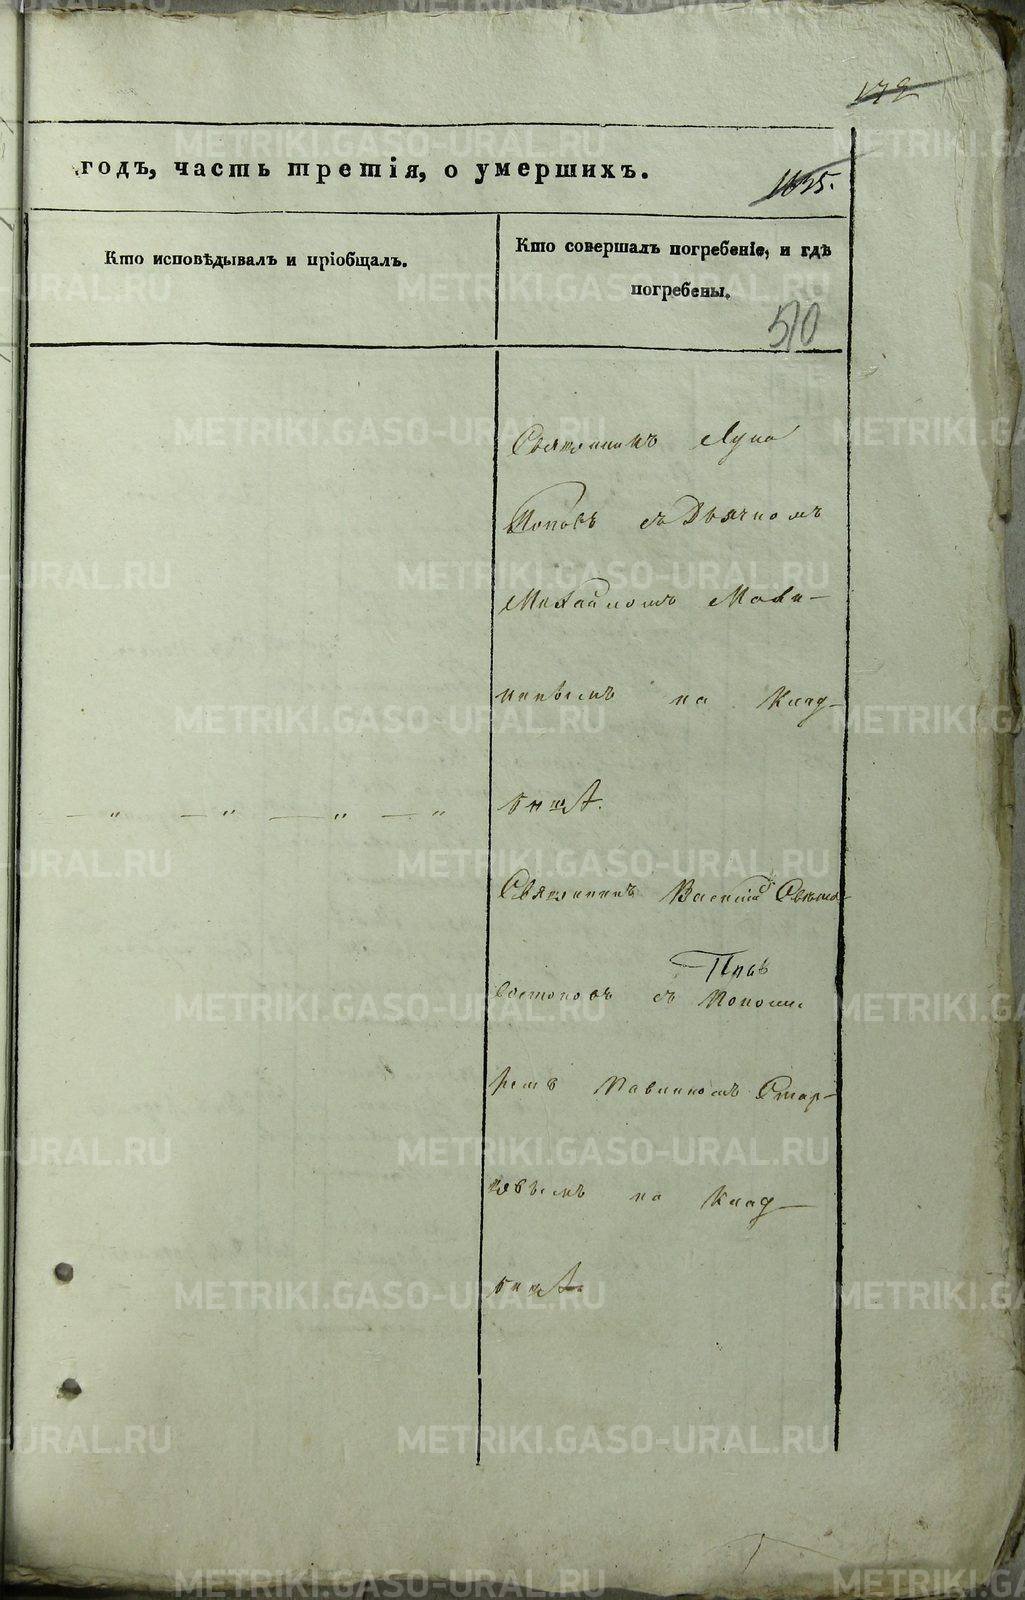 годъ, часть третія, о умершихъ.
Кто исповѣдывалъ и пріобщалъ.
Кто совершалъ погребеніе, и гдѣ
погребены.
510
Священникъ Лука
Поповъ съ Дьячкомъ
Михаиломъ
на Клад-
бищѣ.
Священникъ Василій
съ Понома
ремъ Павлиномъ Стар-
цовымъ на Клад-
бищѣ
METRIKI.GASO-URAL.RU